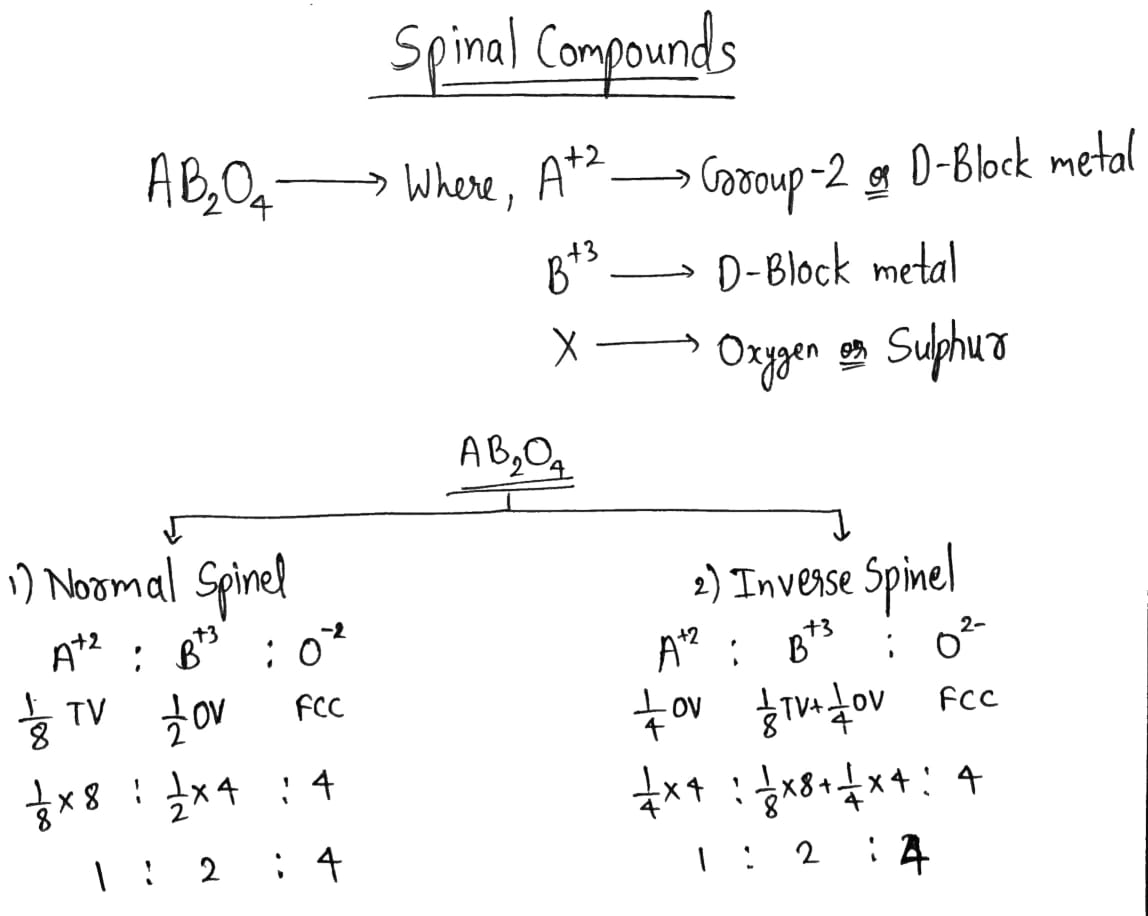 Spinal Compounds
AB₂O₄ → Where, A⁺² → Group-2 or D-Block metal
B⁺³ → D-Block metal
X → Oxygen or Sulphur
AB₂O₄
1) Normal Spinel
A⁺² : B⁺³ : O⁻²
1/8 TV 1/2 OV FCC
1/8 × 8 : 1/2 × 4 : 4
1 : 2 : 4
2) Inverse Spinel
A⁺² : B⁺³ : O²⁻
1/4 OV 1/8 TV + 1/4 OV FCC
1/4 × 4 : 1/8 × 8 + 1/4 × 4 : 4
1 : 2 : 4